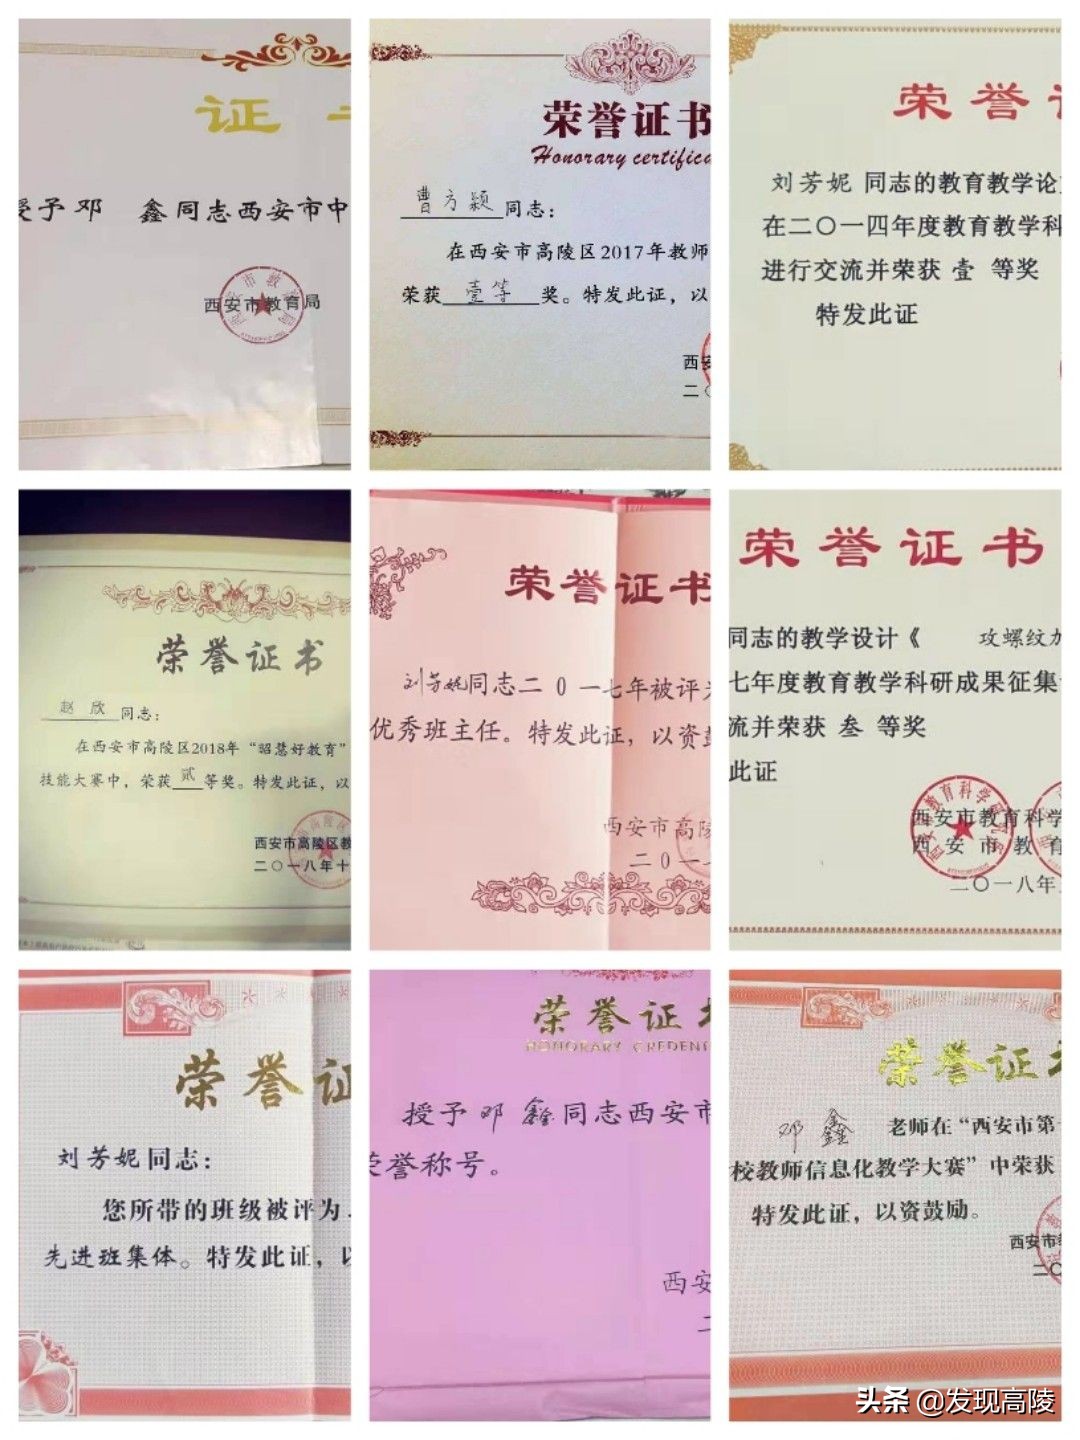 证
授予邓 鑫同志西安市中
西安市教育局
荣誉证书
Honorary certifica
曹方颖同志：
在西安市高陵区2017年教师
荣获壹等奖。特发此证，以
西安
二〇
荣誉
刘芳妮 同志的教育教学论
在二〇一四年度教育教学科
进行交流并荣获 壹 等奖
特发此证
荣誉证书
赵欣同志：
在西安市高陵区2018年“昭慧好教育”
技能大赛中，荣获贰等奖。特发此证，以
西安市高陵区教
二〇一八年十
荣誉证书
刘芳妮同志二0一七年被评为
优秀班主任。特发此证，以资鼓
西安市高陵
二0一
荣誉证书
同志的教学设计《 攻螺纹加
七年度教育教学科研成果征集
流并荣获 叁 等奖
此证
西安市教育科学
西安市教育
二〇一八年
荣誉证
刘芳妮同志：
您所带的班级被评为
先进班集体。特发此证，以
荣誉证书
HONORARY CREDENT
授予邓 鑫同志西安市
荣誉称号。
西安
二
荣誉证书
邓鑫 老师在“西安市第
校教师信息化教学大赛”中荣获
特发此证，以资鼓励。
西安市
二〇
头条 @发现高陵